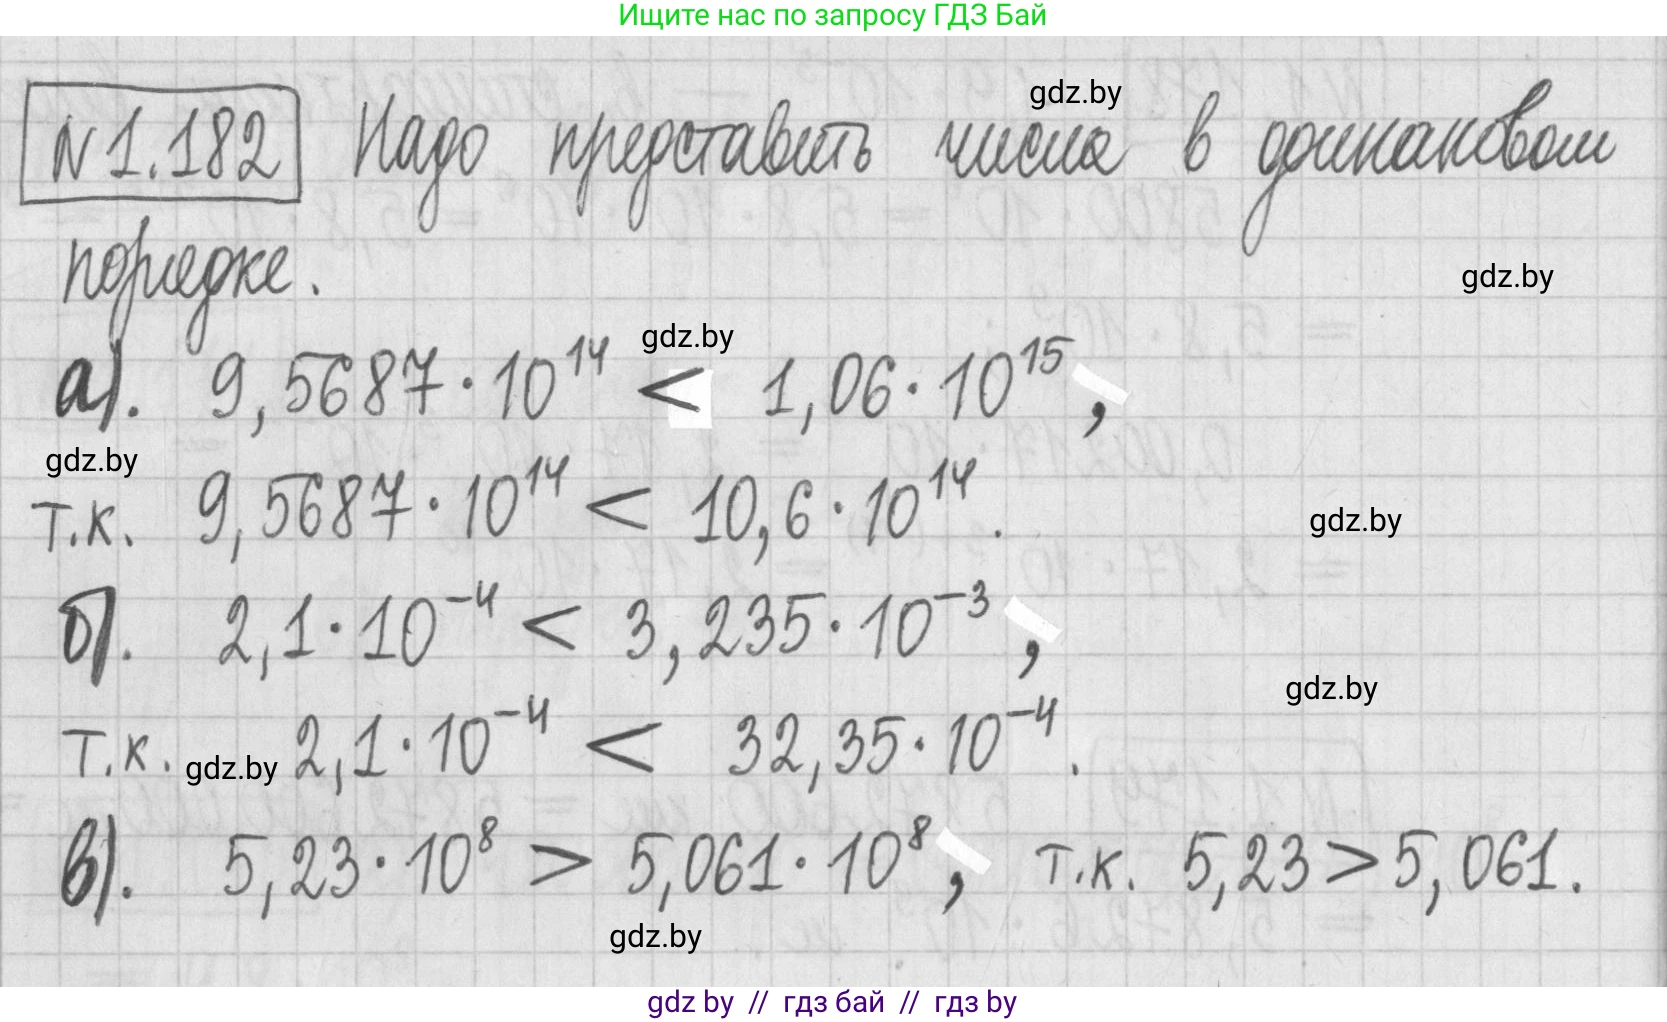 Ищите нас по запросу ГДЗ Бай
№1.182 Надо представить числа в одинаковом
gdz.by
порядке.
gdz.by
gdz.by
а). 9,5687·10¹⁴ < 1,06·10¹⁵,
gdz.by
т.к. 9,5687·10¹⁴ < 10,6·10¹⁴.
gdz.by
б). 2,1·10⁻⁴ < 3,235·10⁻³,
gdz.by
т.к. 2,1·10⁻⁴ < 32,35·10⁻⁴.
gdz.by
в). 5,23·10⁸ > 5,061·10⁸, т.к. 5,23 > 5,061.
gdz.by
gdz by // гдз бай // гдз by